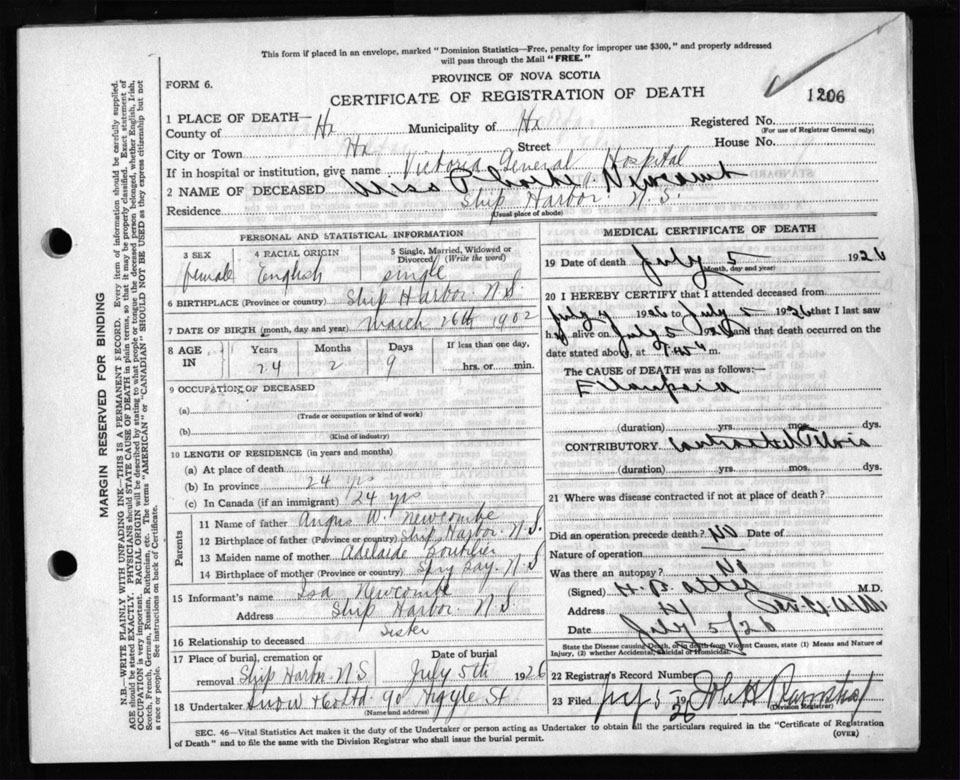 This form if placed in an envelope, marked "Dominion Statistics—Free, penalty for improper use $300," and properly addressed
will pass through the Mail "FREE."
PROVINCE OF NOVA SCOTIA
FORM 6.
CERTIFICATE OF REGISTRATION OF DEATH
1206
1 PLACE OF DEATH—
County of Hx Municipality of Hx Registered No.
(For use of Registrar General only)
City or Town Hx Street House No.
If in hospital or institution, give name Victoria General Hospital
2 NAME OF DECEASED Miss Newcomb
Residence Ship Harbor N.S.
(Usual place of abode)
PERSONAL AND STATISTICAL INFORMATION
3 SEX female
4 RACIAL ORIGIN English
5 Single, Married, Widowed or Divorced (Write the word) single
6 BIRTHPLACE (Province or country) Ship Harbor N.S.
7 DATE OF BIRTH (month, day and year) March 26th 1902
8 AGE IN Years Months Days If less than one day,
24 2 9 hrs. or min.
9 OCCUPATION OF DECEASED
(a)
(Trade or occupation or kind of work)
(b)
(Kind of industry)
10 LENGTH OF RESIDENCE (in years and months)
(a) At place of death
(b) In province 24 yrs
(c) In Canada (if an immigrant) 24 yrs
Parents
11 Name of father Angus W. Newcombe
12 Birthplace of father (Province or country) Ship Harbor N.S.
13 Maiden name of mother Adelaide Boutilier
14 Birthplace of mother (Province or country) Spry Bay. N.S
15 Informant's name Isa Newcombe
Address Ship Harbor N.S.
16 Relationship to deceased Sister
17 Place of burial, cremation or removal Ship Harbor N.S. Date of burial July 5th 1926
18 Undertaker Snow & Co Ltd 90 Argyle St
(Name and address)
MEDICAL CERTIFICATE OF DEATH
19 Date of death July 5 1926
(Month, day and year)
20 I HEREBY CERTIFY that I attended deceased from
July 4 1926 to July 5 1926 that I last saw
h alive on July 5 1926 and that death occurred on the
date stated above, at m.
The CAUSE OF DEATH was as follows:—
Eclampsia
(duration) yrs. mos. dys.
CONTRIBUTORY contracted Pelvis
(duration) yrs. mos. dys.
21 Where was disease contracted if not at place of death?
Did an operation precede death? No Date of
Nature of operation
Was there an autopsy? No
(Signed) M.D.
Address
Date July 5/26
State the Disease causing Death, or in death from Violent Causes, state (1) Means and Nature of
Injury, (2) whether Accidental, Suicidal or Homicidal.
22 Registrar's Record Number
23 Filed July 5 1926 John H
(Division Registrar)
SEC. 46—Vital Statistics Act makes it the duty of the Undertaker or person acting as Undertaker to obtain all the particulars required in the "Certificate of Registration
of Death" and to file the same with the Division Registrar who shall issue the burial permit.
(OVER)
MARGIN RESERVED FOR BINDING
N.B.—WRITE PLAINLY WITH UNFADING INK—THIS IS A PERMANENT RECORD. Every item of information should be carefully supplied.
AGE should be stated EXACTLY. PHYSICIANS should STATE CAUSE OF DEATH in plain terms, so that it may be properly classified. Exact statement of
OCCUPATION is very important. RACIAL ORIGIN will be described by stating to what people or tongue the deceased person belonged, whether English, Irish,
Scotch, French, German, Russian, Ruthenian, etc. The terms "AMERICAN" or "CANADIAN" SHOULD NOT BE USED as they express citizenship but not
a race or people. See instructions on back of Certificate.